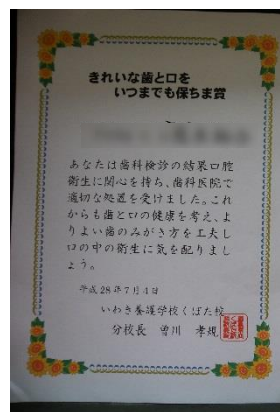 きれいな歯と口を
いつまでも保ちま賞
あなたは歯科検診の結果口腔
衛生に関心を持ち、歯科医院で
適切な処置を受けました。これ
からも歯と口の健康を考え、よ
りよい歯のみがき方を工夫し
口の中の衛生に気を配りまし
ょう。
平成28年7月4日
いわき養護学校くぼた校
分校長 曽川 孝規